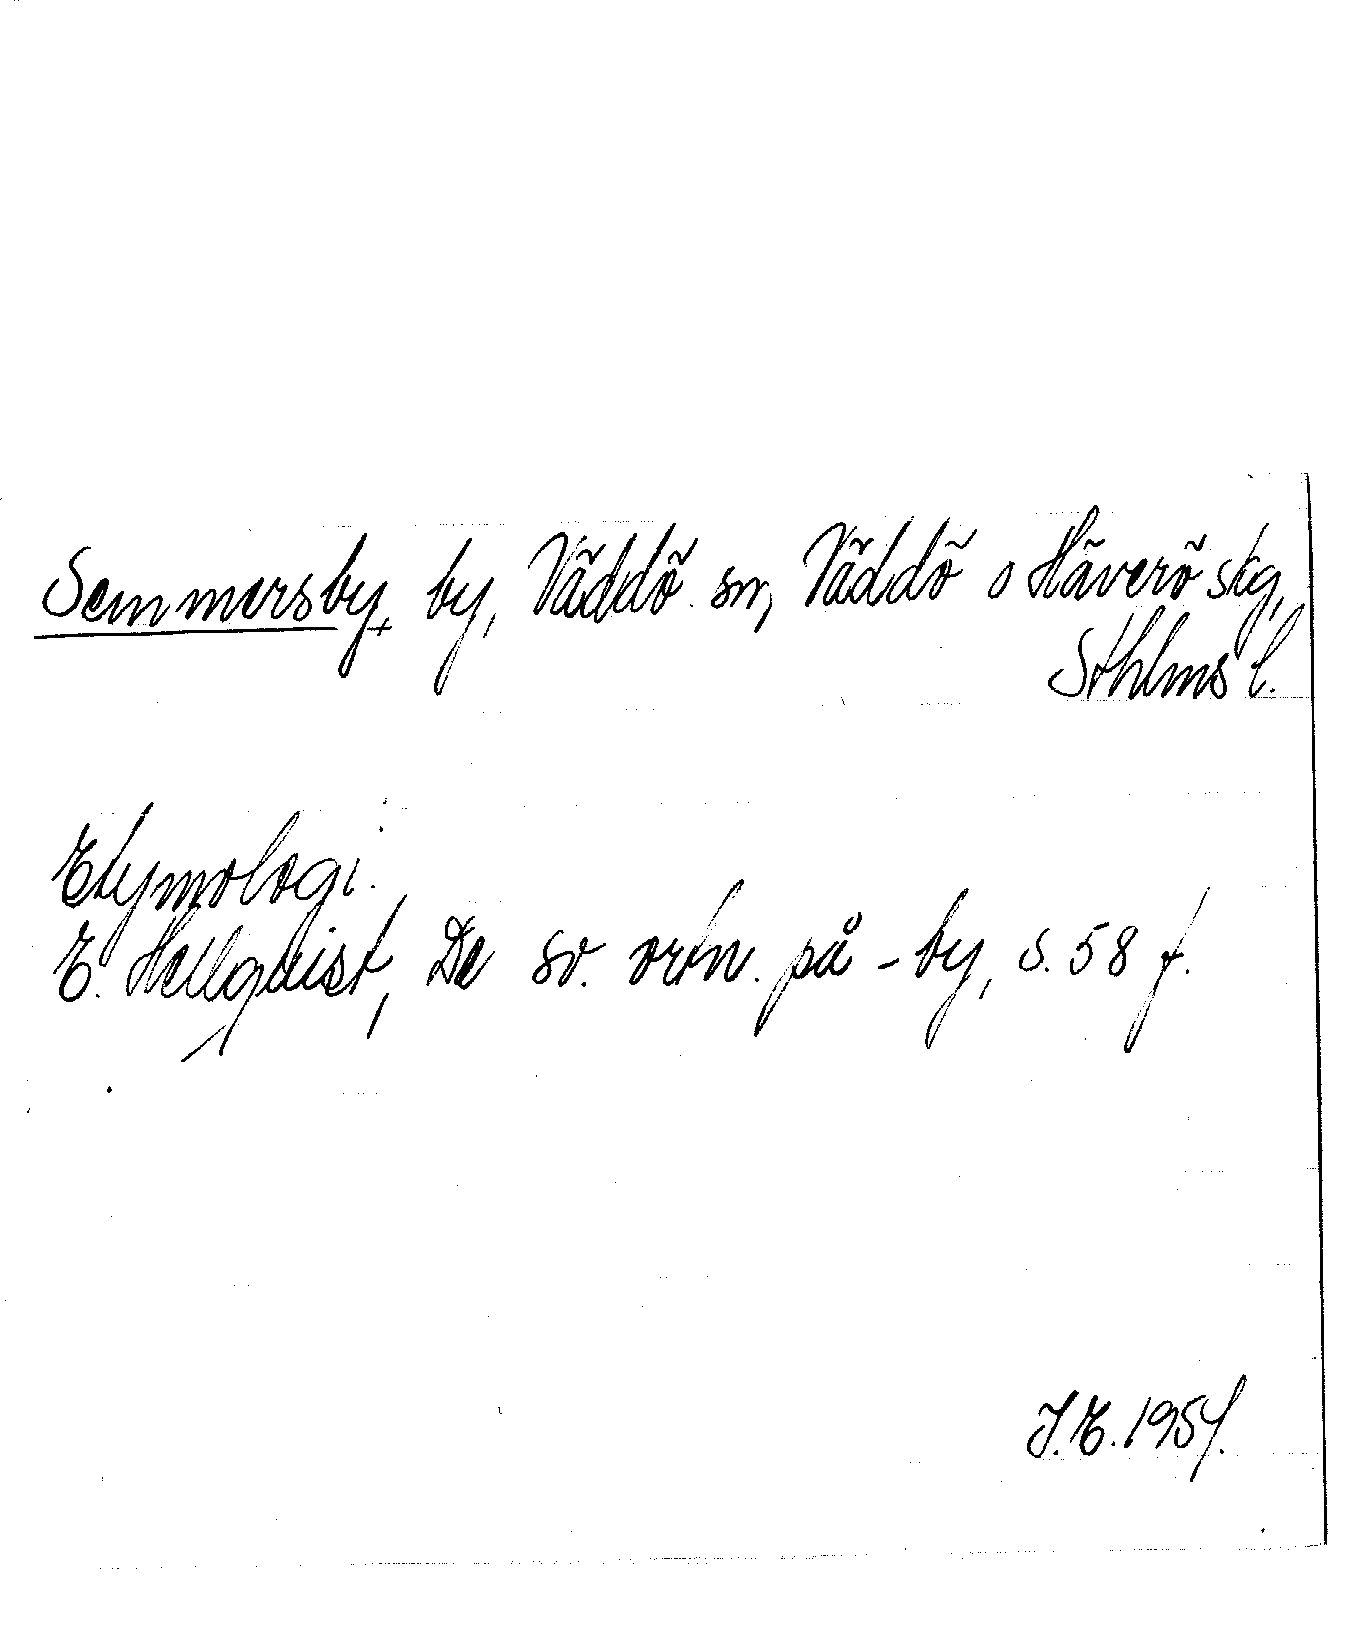 Semmersby, by, Väddö sn, Väddö o Häverö skg,
Sthlms l.
Etymologi.
E. Hellquist, De sv. ortn. på -by, s. 58 f.
J.E. 1954.